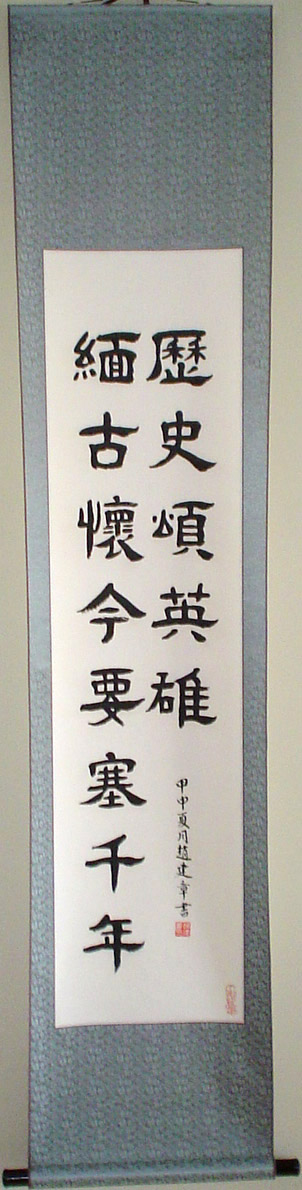 緬古懷今要塞千年
歷史頌英雄
甲申夏月趙建章書